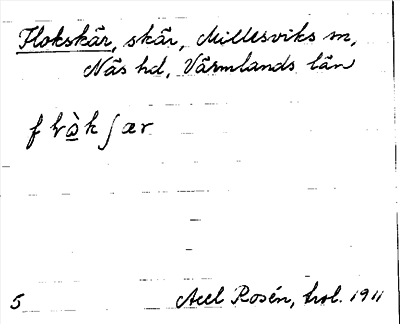 Flokskär, skär, Millesviks sn,
Näs hd, Värmlands län
5 Axel Rosén, trol. 1911